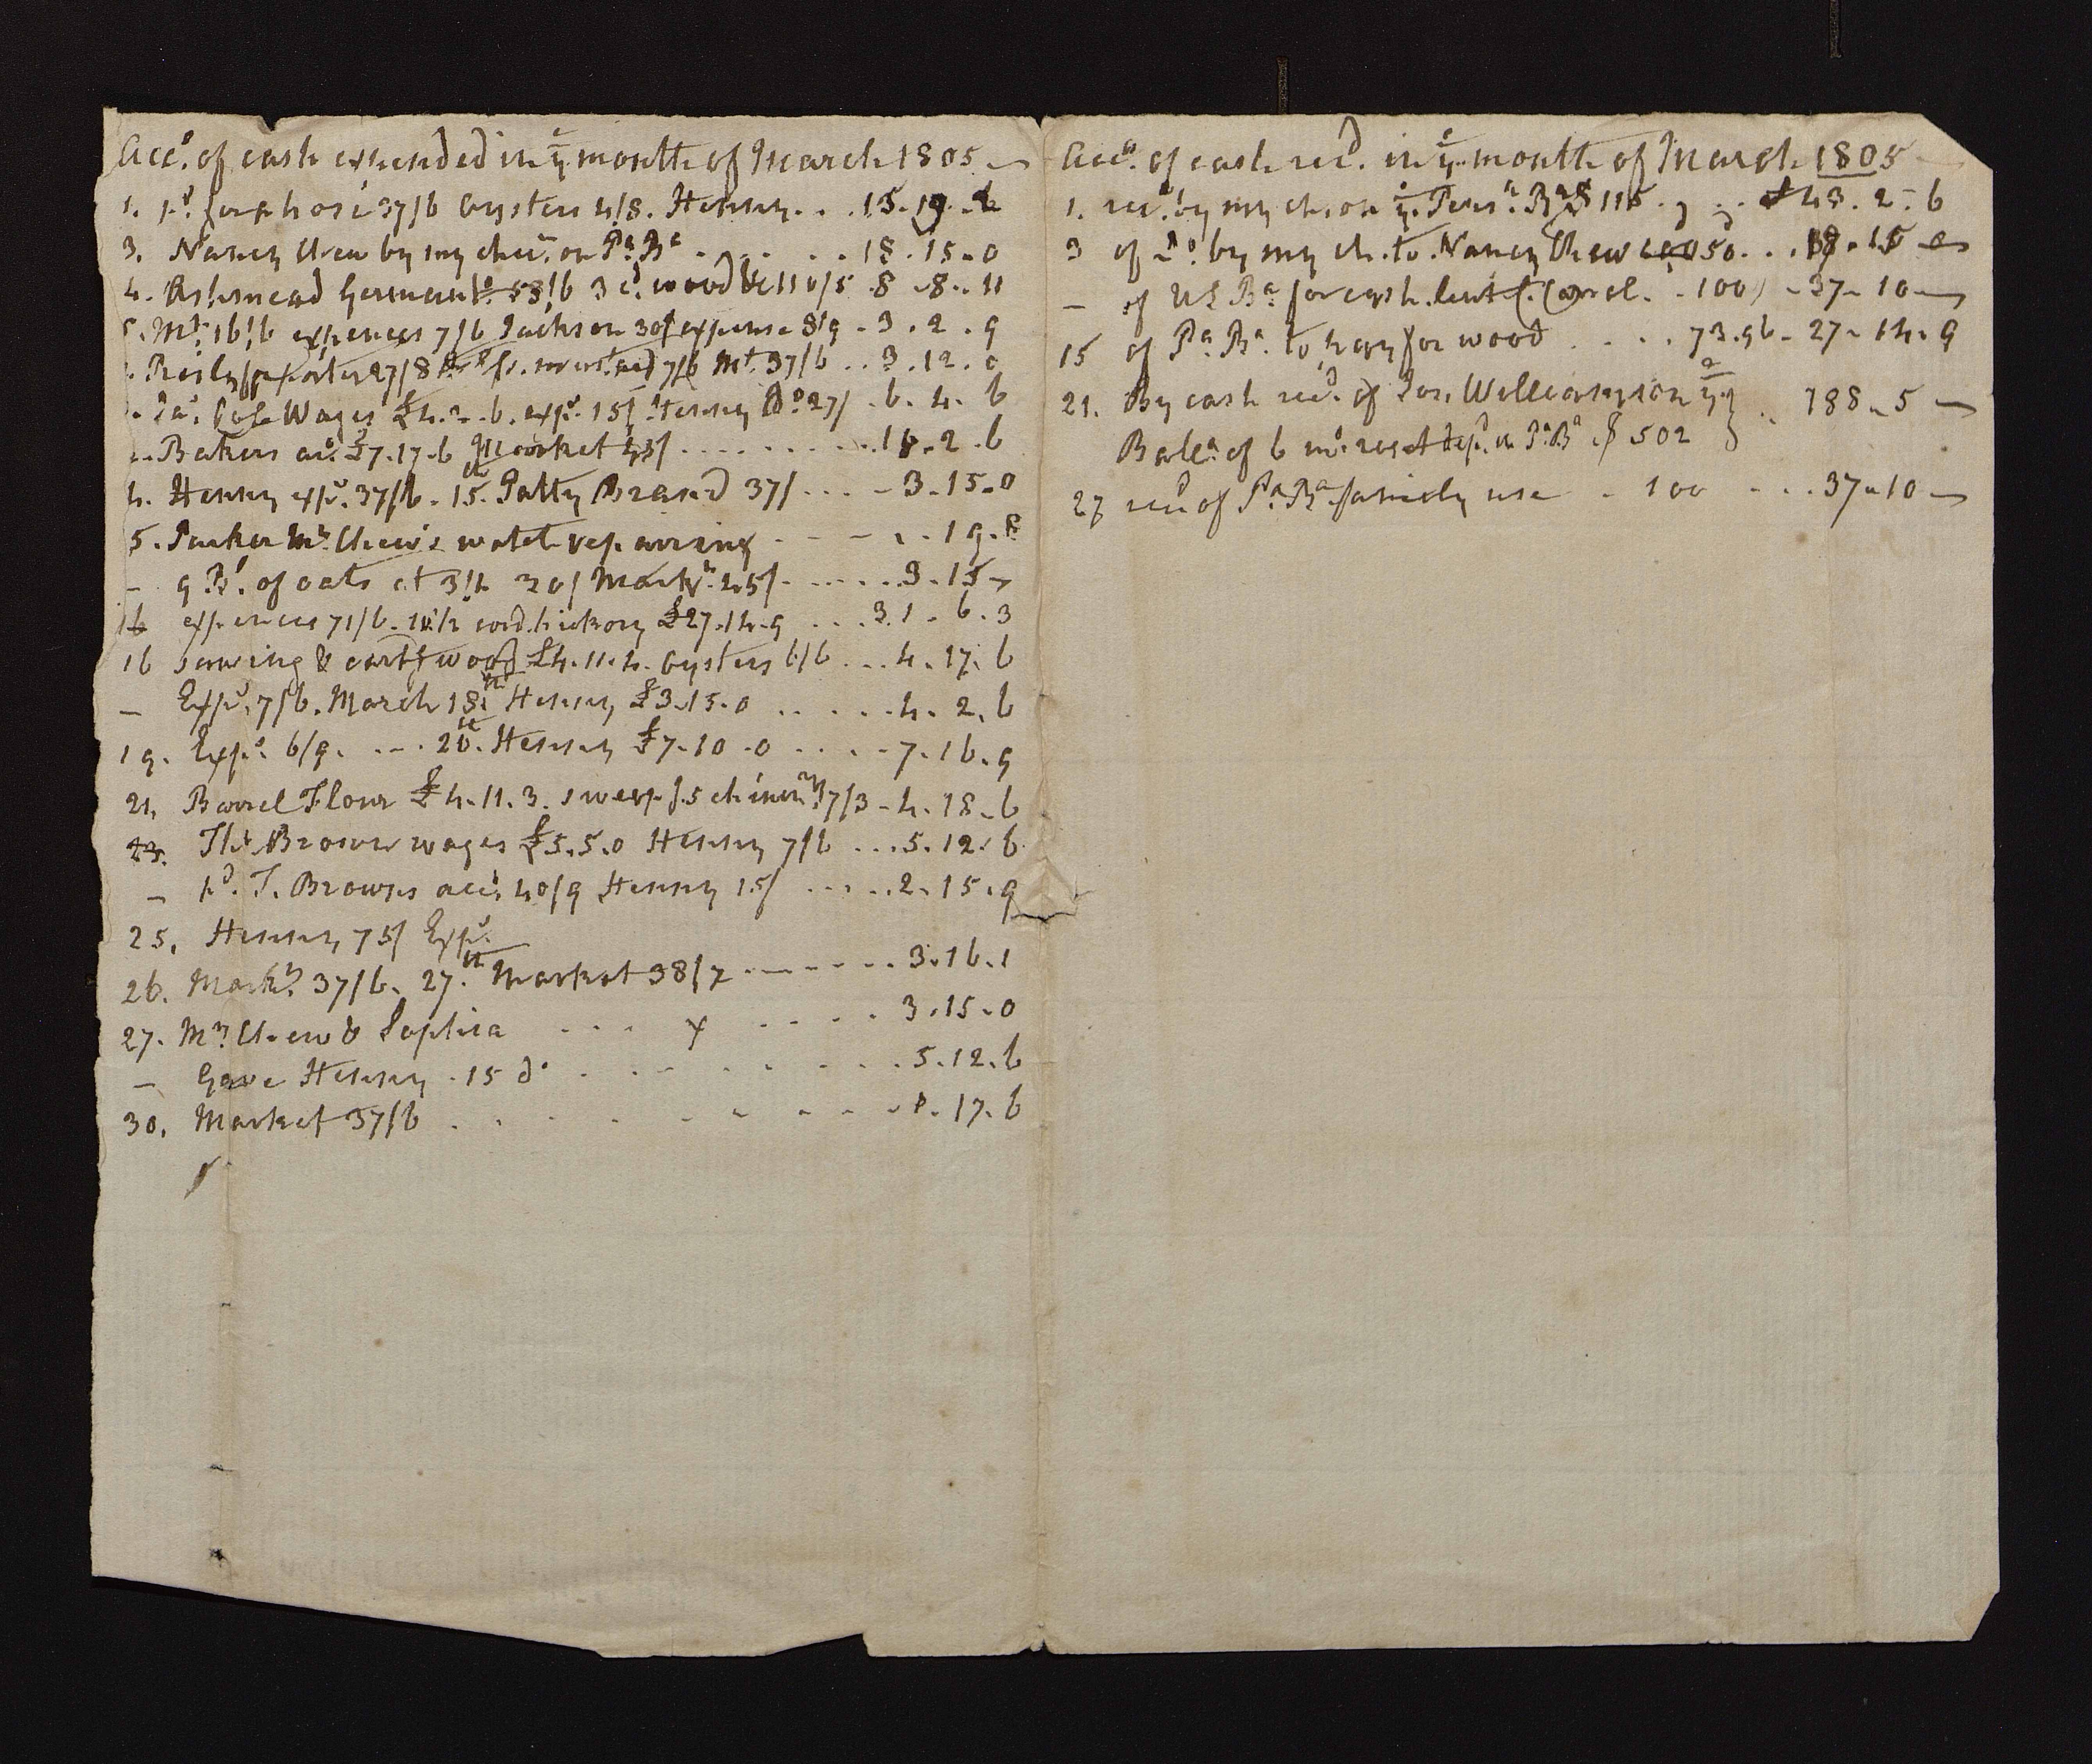 Acct. of cash expended in ye month of March 1805
1. pd. for a hose 37/6 Oysters 4/8. Henry . . . 15. 19. 2
3. Nancy Chew by my check on Pa. Ba . . . . . 18. 15. 0
4. Ashmead German to. 58/6 3 cd. wood &c 110/5 . 8. 8. 11
5. Mt. 16/6 expences 7/6 Jackson 30/ expense 8/9 - 3. 2. 9
Reily porter 27/8 mustard 7/6 Mt. 37/6 . . 3. 12. 0
Wages £4. 2. 6. exps. 15/ Henry Do. 27/ . 6. 4. 6
Bakers acct. £7. 17. 6 Market 45/ . . . . . . . 2. 6
4. Henry exps. 37/6 . 15. Patty Brand 37/ . . . - 3. 15. 0
5. Parker Mrs. Chew's watch repairing - - - . . 19.
- 9 Bs. of oats at 3/4 30/ Markt. 45/ . . . . . 3. 15
16 expences 71/6. cord hickory £27. 14. 9 . . . 31. 6. 3
16 sawing & cartg wood £4. 11. 4. Oysters 6/6 . . . 4. 17. 6
- Exps. 7/6. March 18th Henry £3. 15. 0 . . . . . 4. 2. 6
19. Exps. 6/9. . . . 20th. Henry £7. 10. 0 . . . . 7. 16. 9
21. Barrel Flour £4. 11. 3. sweepg. 5 chimnys 7/3 - 4. 18. 6
23. Ths. Brown wages £5. 5. 0 Henry 7/6 . . . 5. 12. 6
- pd. T. Browns acct. 40/9 Henry 15/ . . . . . 2. 15. 9
25. Henry 75/ Exps.
26. Markt. 37/6. 27th. Market 38/7 . . . . . . . 3. 16. 1
27. Mrs. Chew & Sophia . . . x . . . . 3. 15. 0
- Gave Henry . 15 do . . . . . . . . . 5. 12. 6
30. Market 37/6 . . . . . . . . . 1. 17. 6
Acct. of cash recd. in ye month of March 1805
1. recd. by my check on ye Penn. Ba $ 115 . . . £43. 2. 6
3 of Do. by my ch. to Nancy Chew 50 . . . 18. 15
- of US Ba. for cash lent C. Carrol . - 100 - 37. 10
15 of Pa. Ba. to pay for wood . . . . 73.96 - 27. 14. 9
21. By cash recd. of Jos. Williamson ye } . . 188. 5
Bale. of 6 mo. rent depd. in Pa. Ba $ 502
27 recd. of Pa. Ba family use - 100 - . . 37. 10